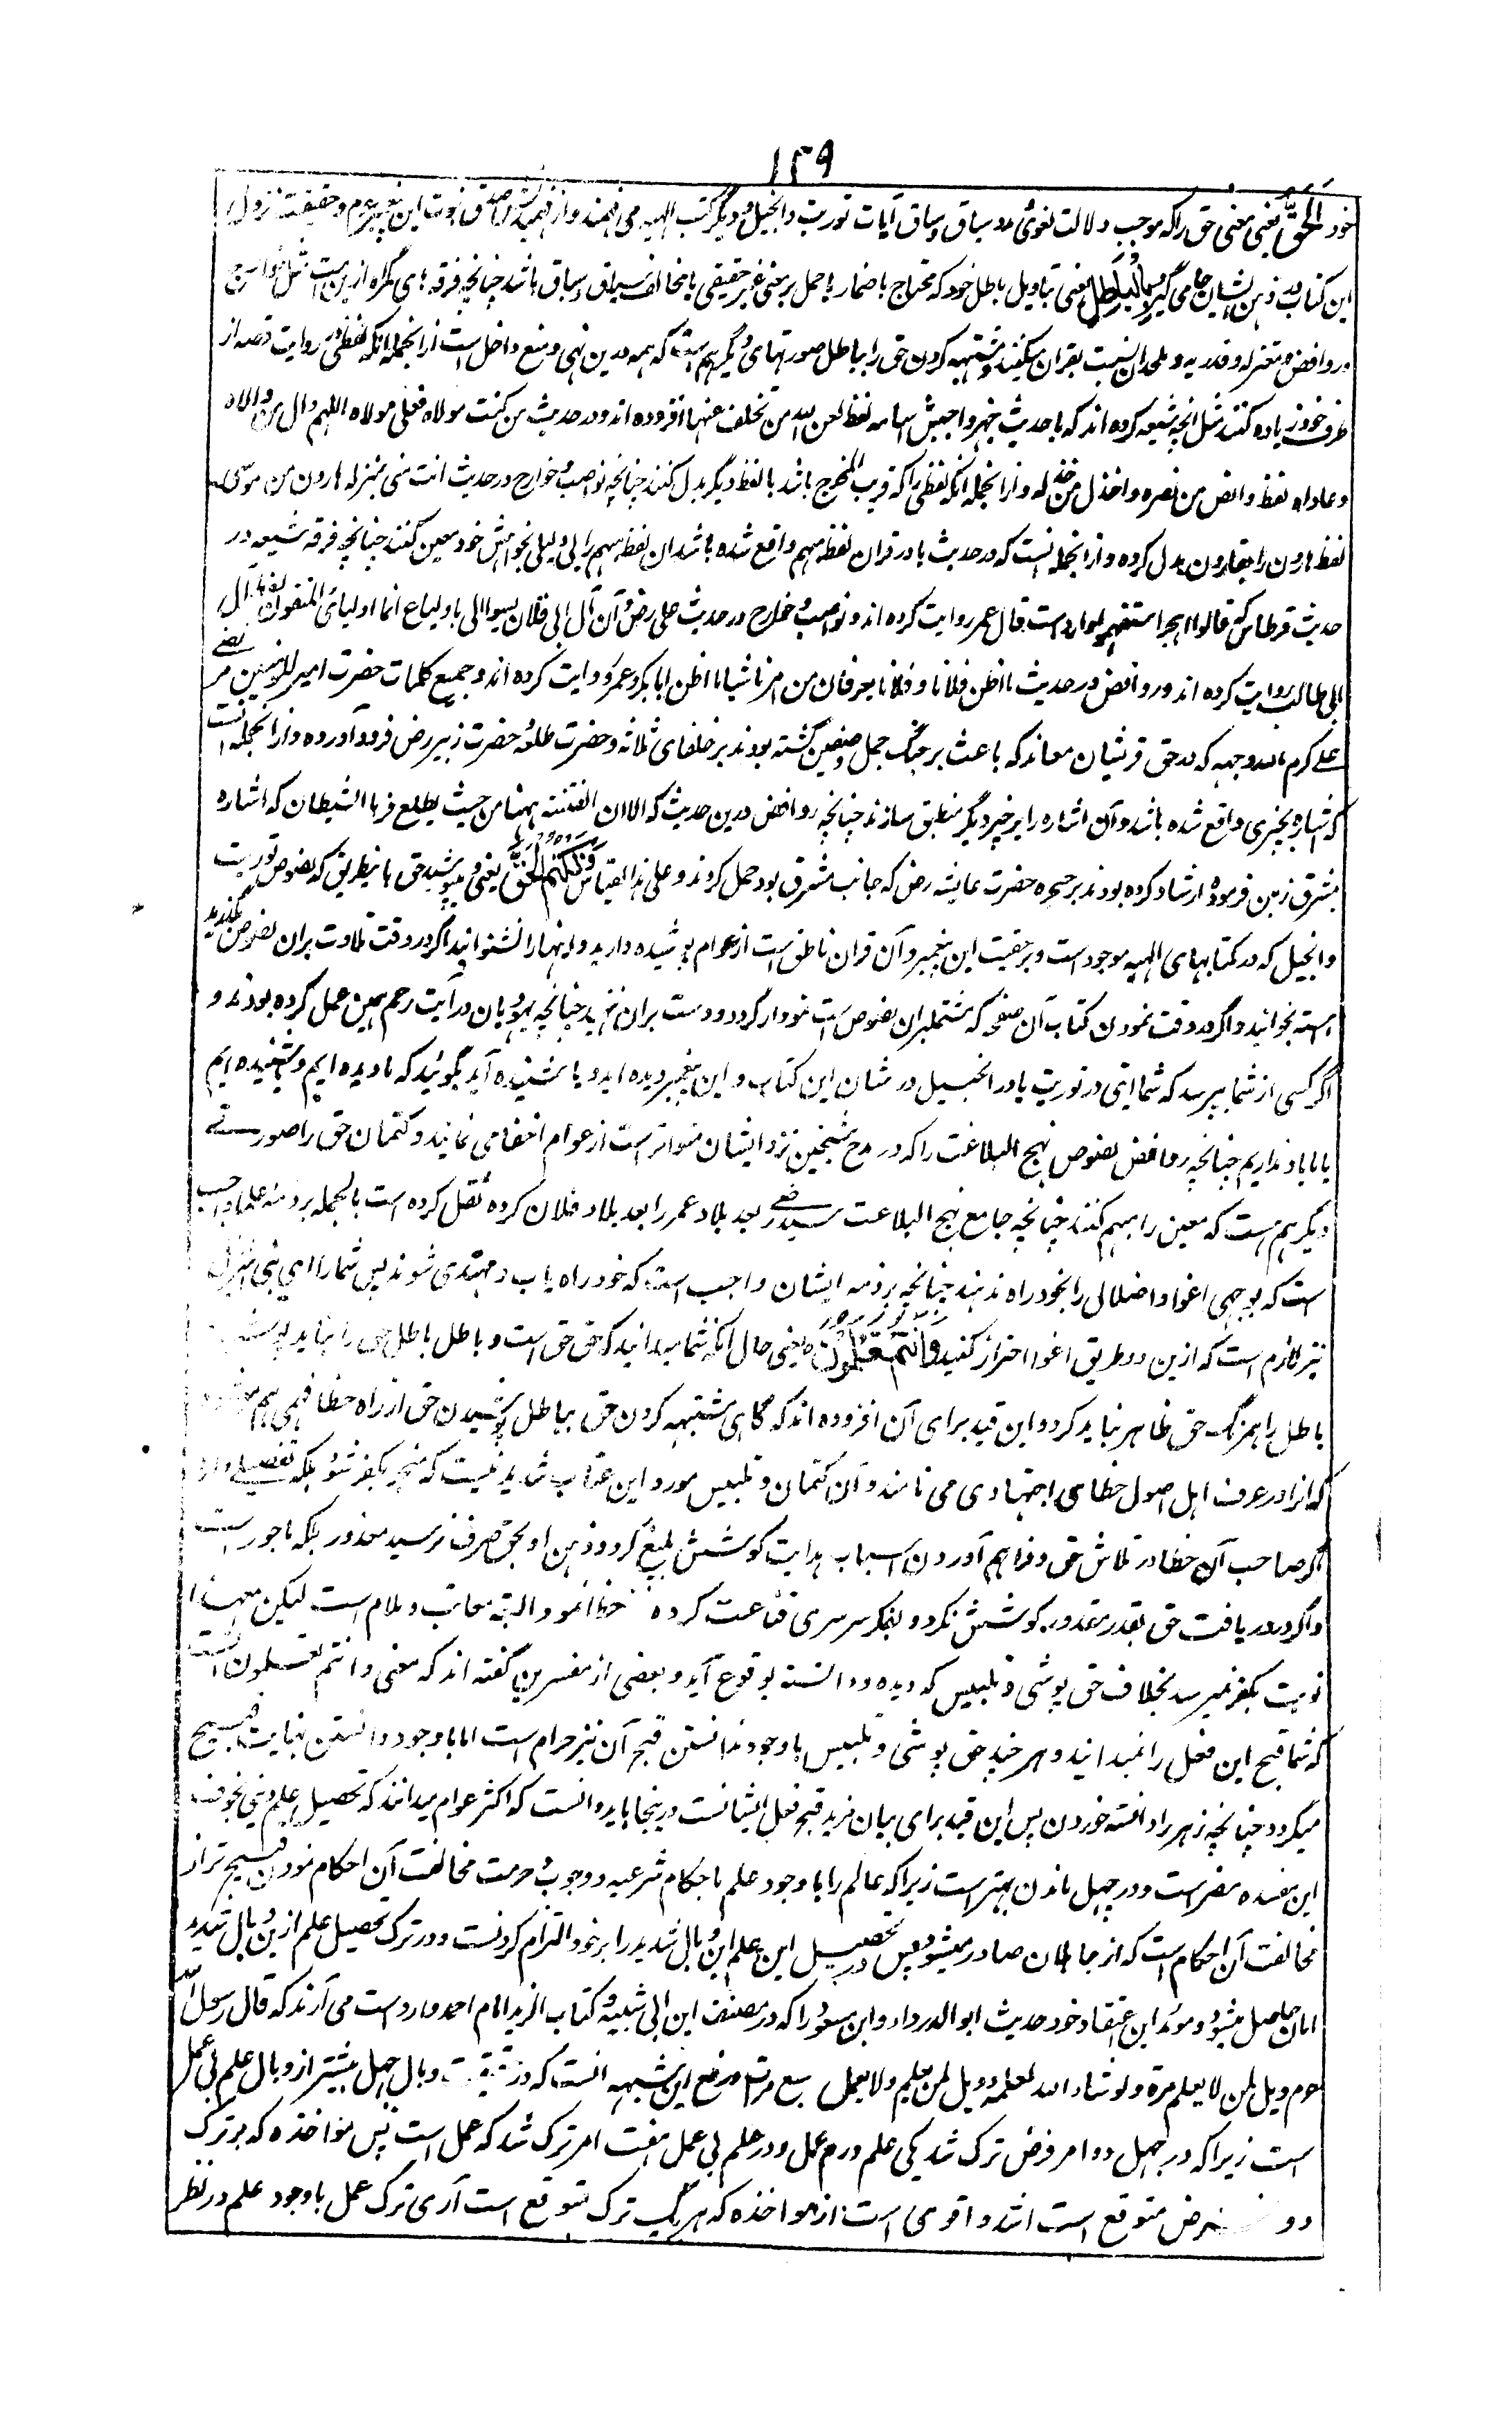 ١٢٩
خود الحق یعنی معنی حق را که موجب دلالت لغوی و سیاق و سباق آیات توریت و انجیل و دیگر کتب الهیه می فهمند و از فهمیدن آن صدق نبوت این پیغمبر و حقیت نزول
این کتاب در ذهن ایشان جا می گیرد بالباطل یعنی بتاویل باطل خود که محتاج باضمار یا حمل بر معنی غیر حقیقی یا مخالف سیاق و سباق باشد چنانچه فرقه های گمراه ازین امت مثل خوارج
و روافض و معتزله و قدریه و ملحدان نسبت بقران میکنند و مشتبهه کردن حق را بباطل صورتهای دیگر هم است که همه درین نهی و منع داخل است ازانجمله آنکه لفظی در روایت قصه از
طرف خود زیاده کنند مثل آنچه شیعه کرده اند که با حدیث جهزوا جیش اسامه لفظ لعن الله من تخلف عنها افزوده اند و در حدیث من کنت مولاه فعلی مولاه اللهم وال من والاه
و عاداه لفظ وانصر من نصره واخذل من خذله و ازانجمله آنکه لفظی را که قریب المخرج باشد بالفظ دیگر بدل کنند چنانچه نواصب و خوارج در حدیث انت منی بمنزله هارون من موسی
لفظ هارون را بقارون بدل کرده و ازانجمله است که در حدیث یا در قران لفظ مبهم واقع شده باشد ان لفظ مبهم را بی دلیلی بخواهش خود معین کنند چنانچه فرقه شیعه در
حدیث قرطاس که قالوا اهجر استفهموه وارد است قال عمر روایت کرده اند و نواصب و خوارج در حدیث ان آل ابی فلان لیسوا لی باولیاء انما اولیائی المتقون لفظ آل
ابی طالب روایت کرده اند و روافض در حدیث ما اظن فلانا و فلانا یعرفان من امرنا شیئا ما اظن ابابکر و عمر روایت کرده اند و جمیع کلمات حضرت امیر المومنین مرتضی
علی کرم الله وجهه که در حق قریشیان معاند که باعث بر جنگ جمل و صفین گشته بودند بر خلفای ثلاثه و حضرت طلحه و حضرت زبیر رض فرود آورده و ازانجمله است
که اشاره بچیزی واقع شده باشد و آن اشاره را بر چیز دیگر منطبق سازند چنانچه روافض درین حدیث که الا ان الفتنة ههنا من حیث یطلع قرن الشیطان که اشاره
بمشرق زمین فرموده ارشاد کرده بودند بر حجره حضرت عایشه رض که جانب مشرق بود حمل کردند و علی هذا القیاس وتکتموا الحق یعنی و میپوشید حق باینطریق که نصوص توریت
و انجیل که در کتابهای الهیه موجود است و بر حقیت این پیغمبر و آن قران ناطق است از عوام پوشیده دارید و انها را نشنوانید اگر در وقت تلاوت بران نصوص بگذرید
اهسته بخوانید و اگر در وقت نمودن کتاب آن صفحه که مشتمل بران نصوص است نمودار گردد دست بران نهید چنانچه یهودیان در آیت رجم همین عمل کرده بودند و
اگر کسی از شما بپرسد که شما آیتی در توریت یا در انجیل در شان این کتاب و این پیغمبر دیده اید و یا شنیده اید بگوئید که نادیده ایم و نشنیده ایم
یا ما یاد نداریم چنانچه روافض نصوص نهج البلاغت را که در مدح شیخین نزد ایشان متواتر است از عوام اخفا می نمایند و کتمان حق را صورتے
دیگر هم هست که معین را مبهم کنند چنانچه جامع نهج البلاغت سید رضے بعد بلاد عمر را بعد بلاد فلان کرده نقل کرده است بالجمله بر ذمه علما واجب
است که بوجهی اغوا و اضلالی را بخود راه ندهند چنانچه بر ذمه ایشان واجب است که خود راه یاب و مهتدی شوند پس شما را ای بنی اسرائیل
نیز لازم است که ازین دو طریق اغوا احتراز کنید وانتم تعلمون یعنی حال آنکه شما میدانید که حق حق است و باطل باطل حق را نباید پوشید
باطل را همرنگ حق ظاهر نباید کرد و این قید برای آن افزوده اند که گاهی مشتبهه کردن حق بباطل و پوشیدن حق از راه خطا فهمی هم میشود
که انرا در عرف اهل اصول خطای اجتهادی می نامند و آن کتمان و تلبیس مورد این عتاب شدید نیست که منجر بکفر شود بلکه تفصیلے دارد
اگر صاحب آن خطا در تلاش حق و فراهم آوردن اسباب هدایت کوشش بلیغ کرد و ذهن او بحق صرف نرسید معذور بلکه ماجور است
و اگر در دریافت حق بقدر مقدور کوشش نکرد و بفکر سرسری قناعت کرده خطا نمود البته معاتب و ملام است لیکن معهذا
نوبت بکفر نمیرسد بخلاف حق پوشی و تلبیس که دیده و دانسته بوقوع آید و بعضی از مفسرین گفته اند که معنی وانتم تعلمون انست
که شما قبح این فعل را نمیدانید و هر چند حق پوشی و تلبیس باوجود ندانستن قبح آن نیز حرام است اما باوجود دانستن نهایت قبیح
میگردد چنانچه زهر را دانسته خوردن پس این قید برای بیان مزید قبح فعل ایشانست درینجا باید دانست که اکثر عوام میدانند که تحصیل علم دینی بخوف
این مفسده مضر است و در جهل ماندن بهتر است زیرا که عالم را باوجود علم باحکام شرعیه و وجوب و حرمت مخالفت آن احکام نمودن قبیح تر از
مخالفت آن احکام است که از جاهلان صادر میشود پس در تحصیل این علم این وبال شدید را بر خود التزام کردنست و در ترک تحصیل علم ازین وبال شدید
امان حاصل میشود و موید این اعتقاد خود حدیث ابو الدرداء و ابن مسعود را که در مصنف ابن ابی شیبه و کتاب الزهد امام احمد وارد است می آرند که قال رسول الله
صلعم ویل لمن لا یعلم مرة ولو شاء الله لعلمه و ویل لمن یعلم ولا یعمل سبع مرات و دفع این شبهه انست که در حقیقت وبال جهل بیشتر از وبال علم بی عمل
است زیرا که در جهل دو امر فرض ترک شد یکی علم دوم عمل و در علم بی عمل هفت امر ترک شد که عمل است پس مواخذه که بر ترک
دو فرض متوقع است اشد و اقوی است از مواخذه که بر یک ترک متوقع است آری ترک عمل باوجود علم در نظر